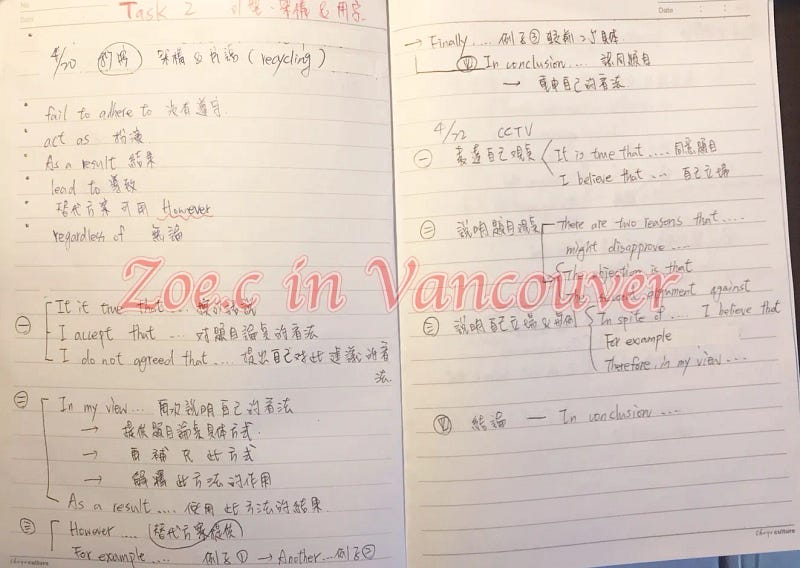 No.
Date
Task 2 句型、架構 & 用字
4/20 架構 & 用詞 (recycling)
fail to adhere to 沒有遵守
act as 扮演
As a result 結果
lead to 導致
替代方案 可用 However
regardless of 無論
㊀ It it true that ....
I accept that .... 對題目論點的看法
I do not agreed that .... 提出自己對此建議的看法.
㊁ In my view ... 再次說明自己的看法
→ 提供題目論點具體方式.
→ 再補充此方式
→ 解釋此方法的作用
As a result .... 使用此方法的結果.
㊂ However .... 替代方案提供
For example .... 例子① → Another... 例子②
Chego culture
Date
→ Finally .... 例子③ 較前2個具體
㊃ In conclusion .... 認同題目
→ 重申自己的看法.
4/22 CCTV
㊀ 表達自己觀點 It is true that .... 同意題目
I believe that ... 自己立場
㊁ 說明題目觀點 There are two reasons that ....
might disapprove ....
The objection is that
argument against
㊂ 說明自己立場 & 舉例 In spite of .... I believe that
For example
Therefore, in my view ....
㊃ 結論 — In conclusion ....
Chego culture
Zoe.c in Vancouver